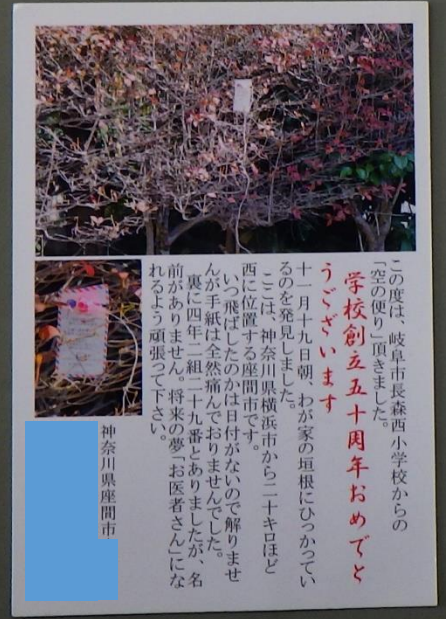 この度は、岐阜市長森西小学校からの
「空の便り」頂きました。
学校創立五十周年おめでと
うございます
十一月十九日朝、わが家の垣根にひっかってい
るのを発見しました。
ここは、神奈川県横浜市から二十キロほど
西に位置する座間市です。
いつ飛ばしたのかは日付がないので解りませ
んが手紙は全然痛んでおりませんでした。
裏に四年二組二十九番とありましたが、名
前がありません。将来の夢「お医者さん」にな
れるよう頑張って下さい。
神奈川県座間市